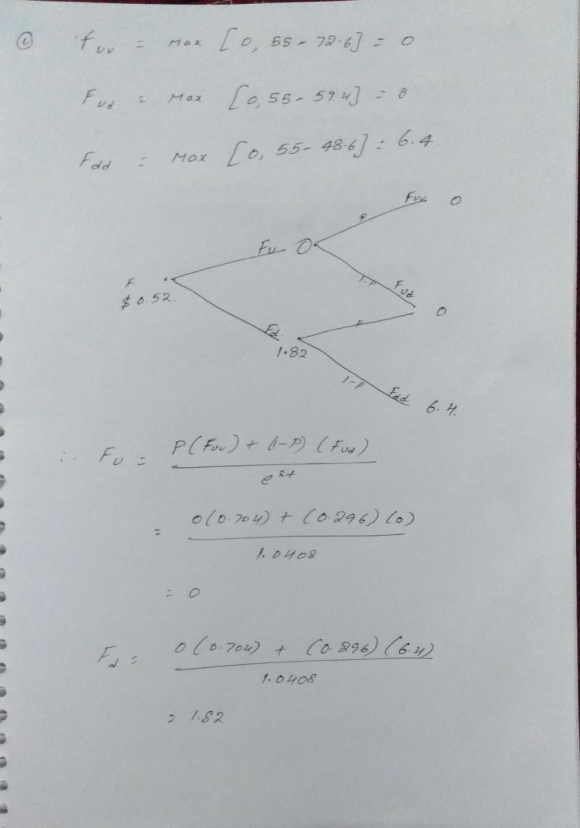 ①
fuu = max [0, 55 - 72.6] = 0
Fud = max [0, 55 - 59.4] = 0
Fdd = max [0, 55 - 48.6] = 6.4.
Fuu 0
P
Fu 0
1-P Fud
F
$ 0.52.
0
Fd. P
1.82
1-P Fdd 6.4.
∴ Fu = P(Fuu) + (1-P) (Fud)
e^rt
= 0(0.704) + (0.296) (0)
1.0408
= 0
Fd = 0(0.704) + (0.296) (6.4)
1.0408
= 1.82